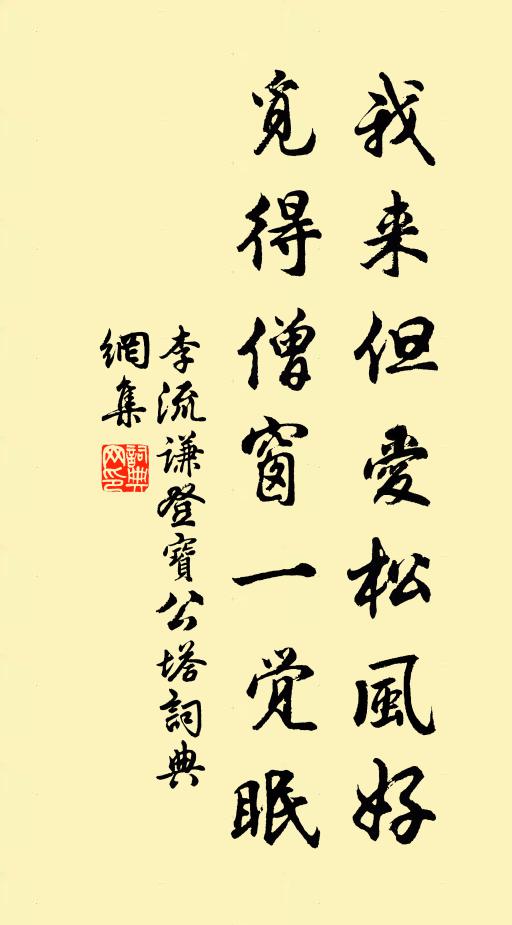 我来但愛松風好
覓得僧窗一觉眠
李流谦登寶公塔詞典
網集
詞典
网印